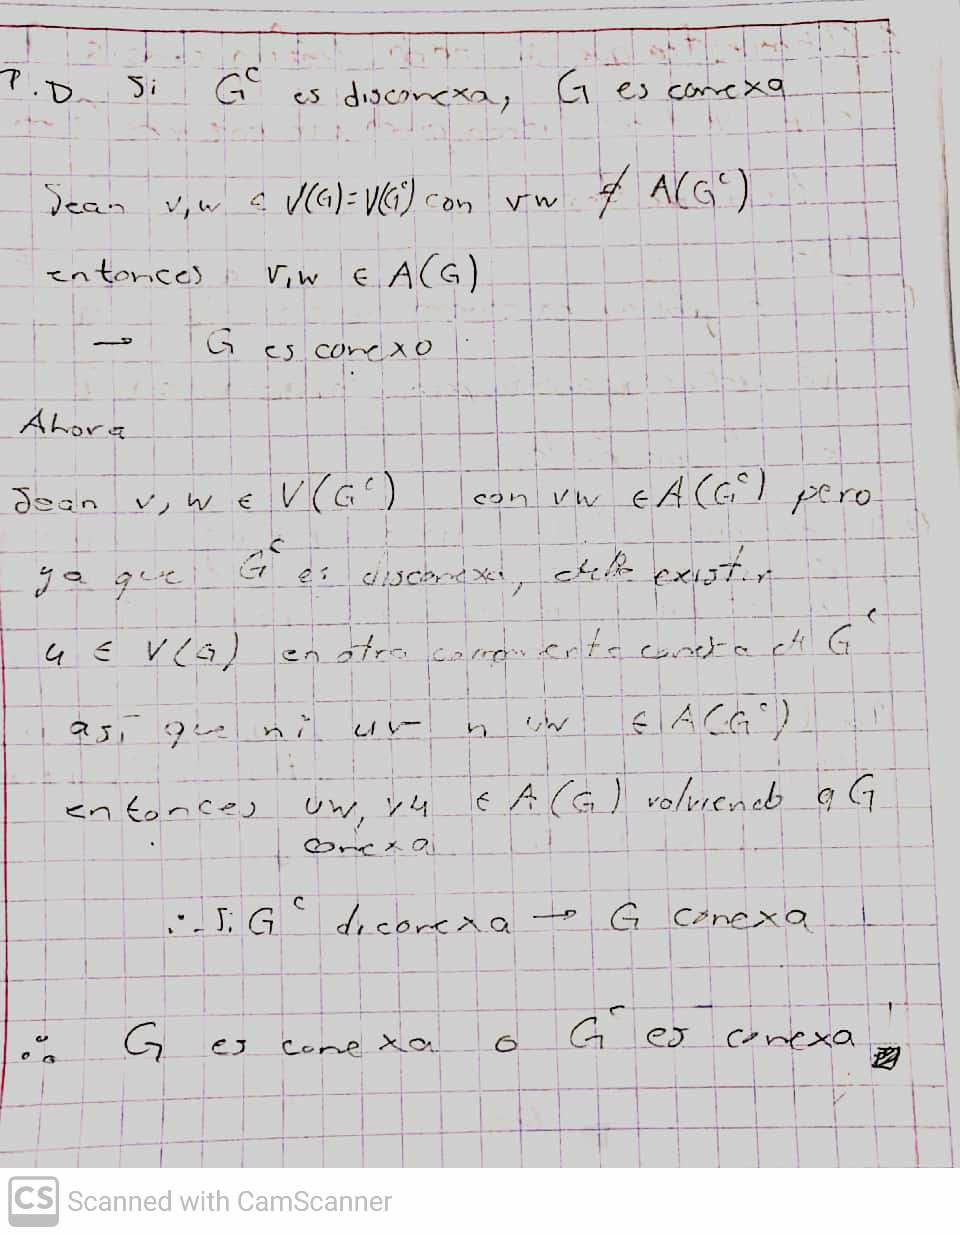 P.D. Si G^c es disconexa, G es conexa
Sean v,w ∈ V(G)=V(G^c) con vw ∉ A(G^c)
entonces v,w ∈ A(G)
→ G es conexo
Ahora
Sean v, w ∈ V(G^c) con vw ∈ A(G^c) pero
ya que G^c es disconexa, debe existir
u ∈ V(G) en otra componente conexa de G^c
así que ni uv n uw ∈ A(G^c)
entonces uw, vu ∈ A(G) volviendo a G
conexa
∴ Si G^c diconexa → G conexa
∴ G es conexa o G^c es conexa
CS Scanned with CamScanner